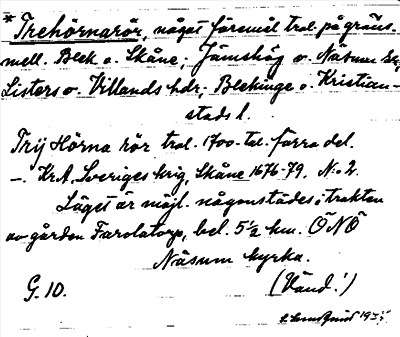 * Trehörnarör, något föremål trol. på gräns.
mell. Blek o. Skåne; Jämshög o. Näsum sn,
Listers o. Villands hdr; Blekinge o. Kristian-
stads l.
Trÿ Hörna rör trol. 1700-tal. förra del.
–. KrA. Sveriges krig, Skåne 1676-79. N:o 2.
Läget är möjl. någonstädes i trakten
av gården Farolatorp, bel. 5½ km. ÖNÖ
Näsum kyrka.
G. 10. (Vänd!)